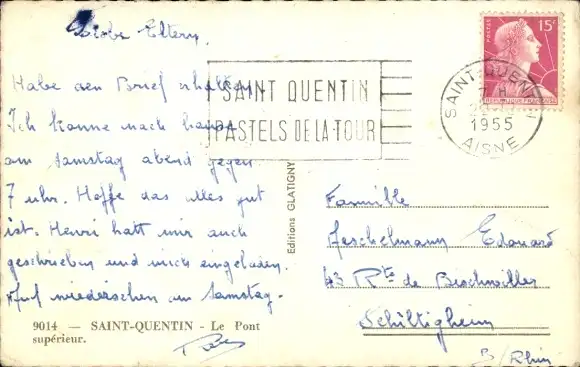 Liebe Eltern,
Habe den Brief erhalten.
Ich komme nach hause
am Samstag abend gegen
7 uhr. Hoffe das alles gut
ist. Henri hatt mir auch
geschrieben und mich eingeladen.
Auf wiedersehen am Samstag.
9014 — SAINT-QUENTIN - Le Pont
supérieur.
SAINT QUENTIN
PASTELS DE LA TOUR
Editions GLATIGNY
POSTES
15F
SAINT-QUENTIN
7 H
1955
AISNE
Famille
Jeschelmann Edouard
43 Rte de Bischwiller
Schiltigheim
B/Rhin